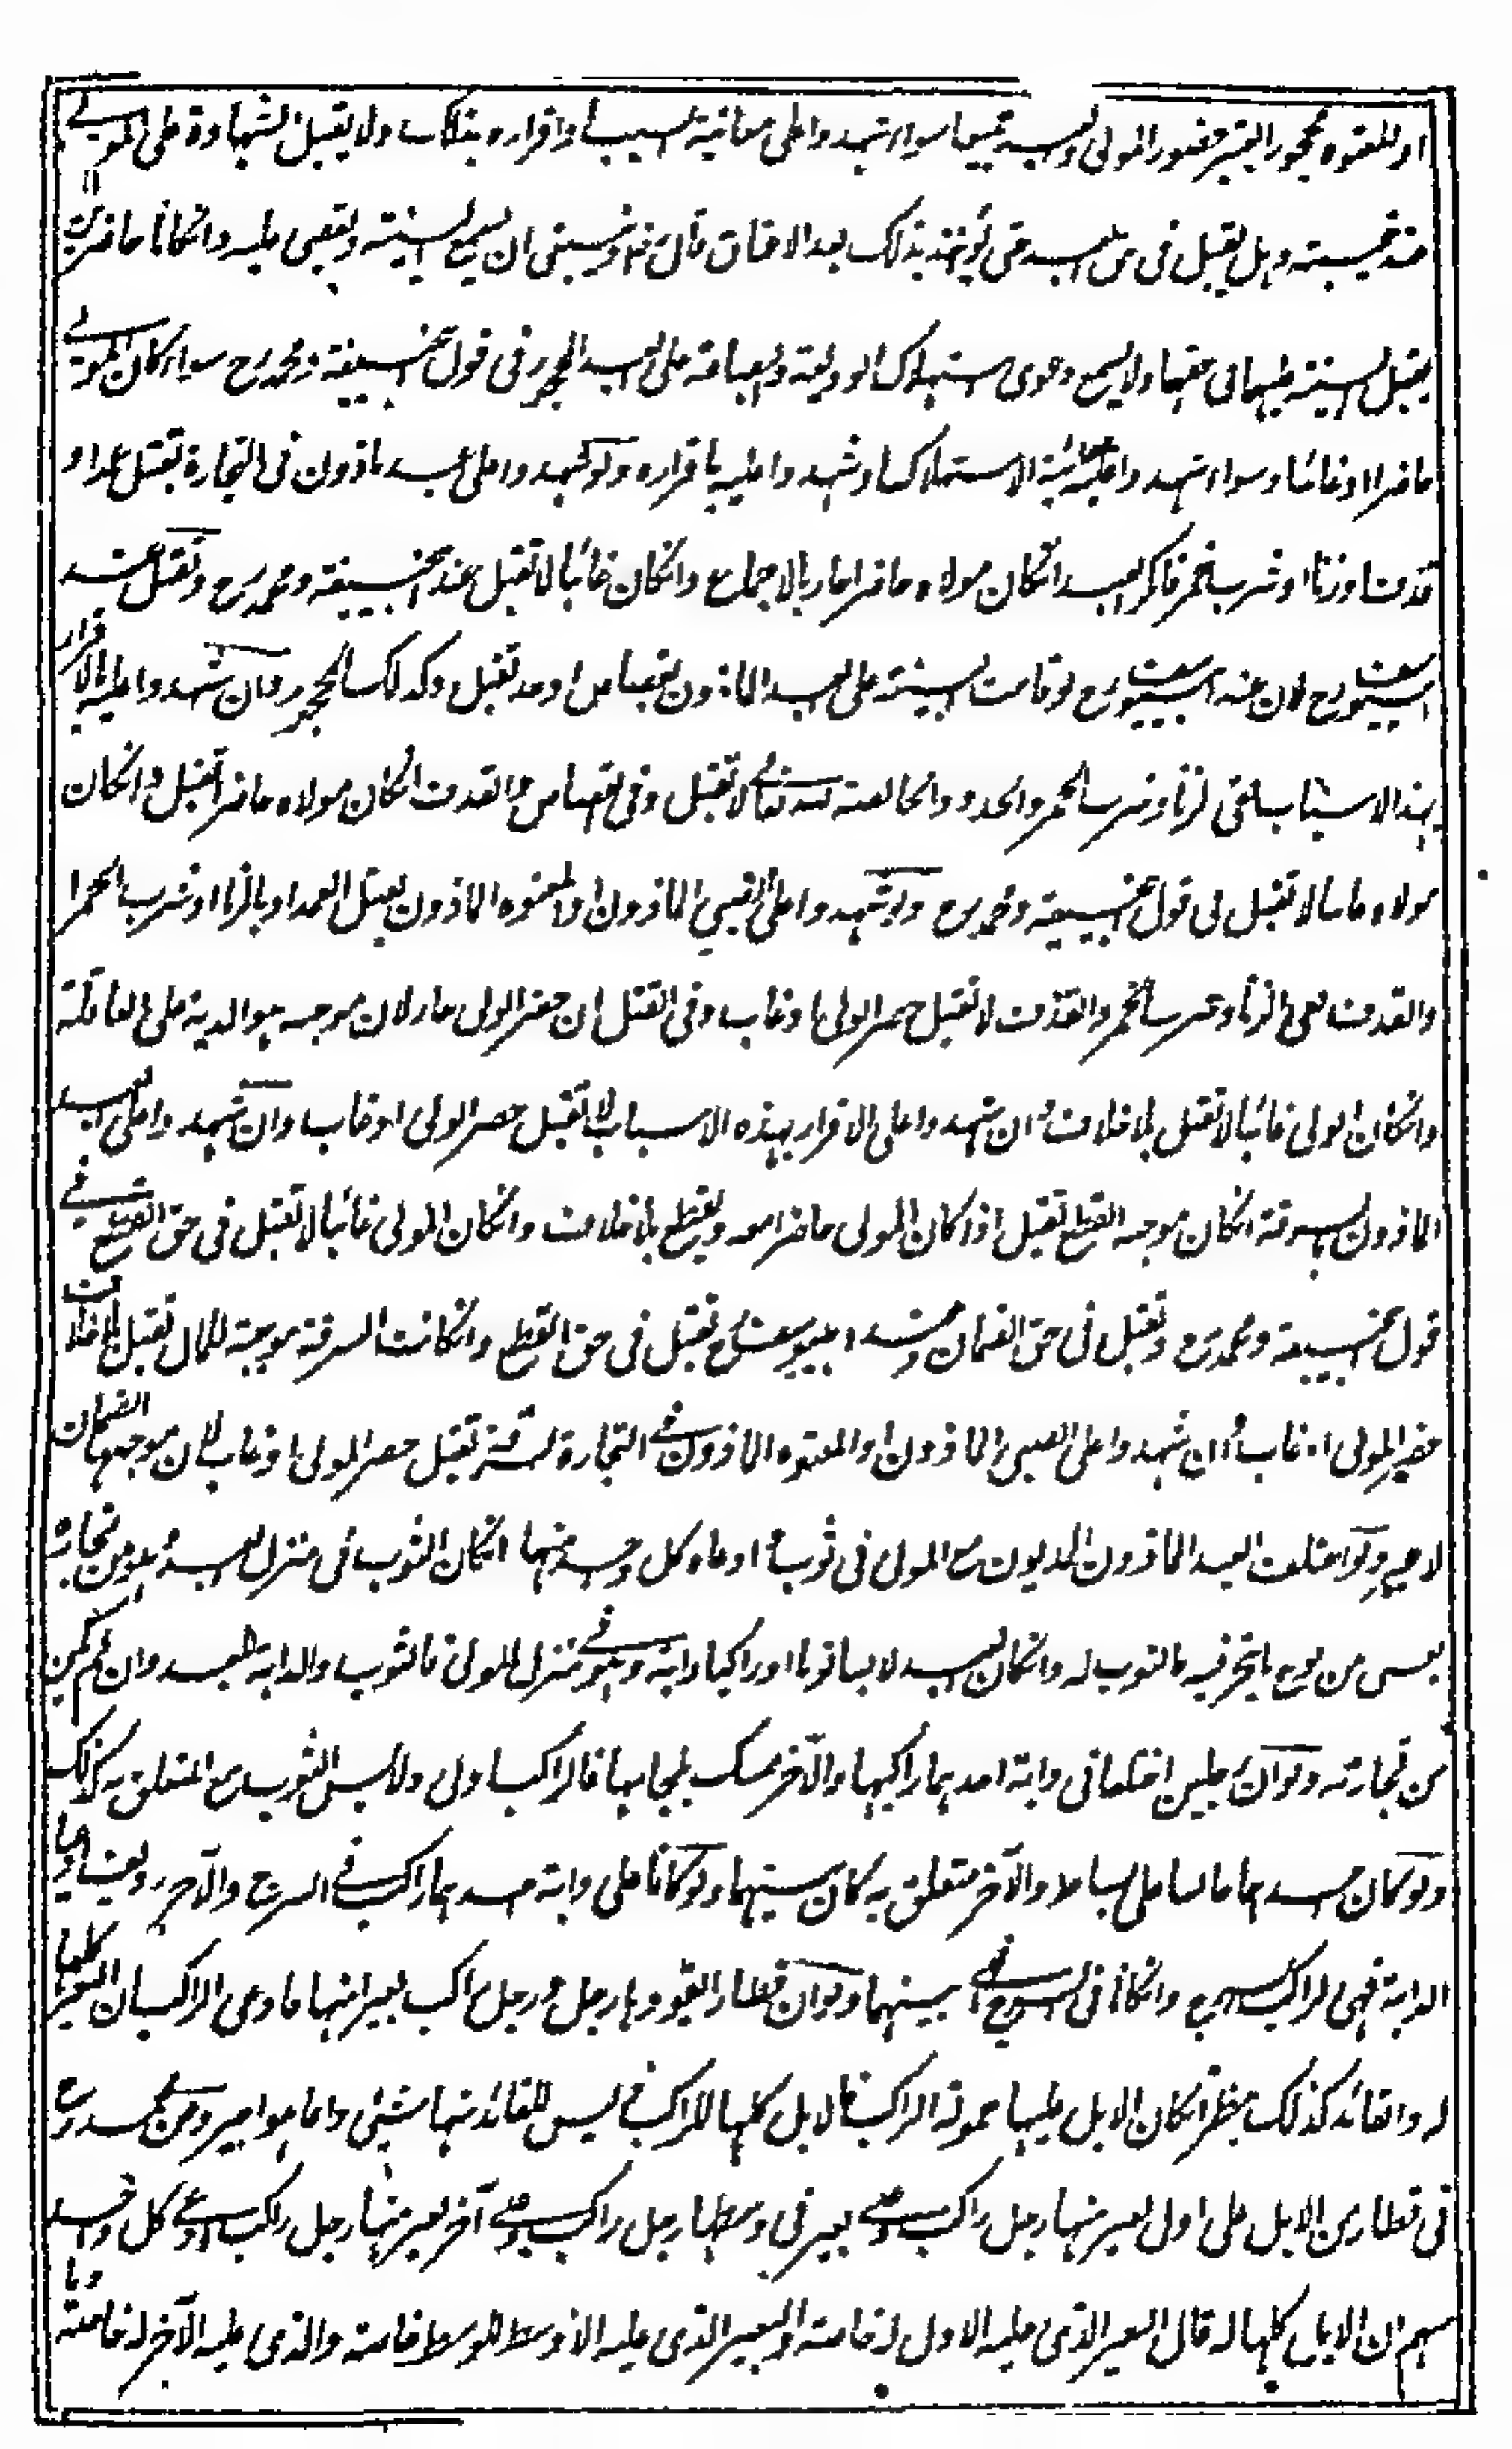 او المعتوه محجورا بشرط حضور المولى والعبد جميعا سواء شهدوا على معاينة السبب او اقراره بذلك ولا يقبل الشهادة على المولى
عند غيبته وهل يقبل في حق العبد حتى يؤاخذ بذلك بعد الاعتاق قال ينبغى ان يسمع البينة ويقضى عليه وان كانا حاضرين
يقبل البينة عليهما فى حقهما ولا يسمع دعوى استهلاك الوديعة والبضاعة على العبد المحجور فى قول ابيحنيفة ومحمد رح سواء كان المولى
حاضرا او غائبا وسواء شهدوا عليه بمعاينة الاستهلاك او شهدوا عليه باقراره ولو شهدوا على عبد ماذون فى التجارة بقتل عمدا و
قذف او زنا او شرب خمر فانكر العبد ان كان مولاه حاضرا جاز بالاجماع وان كان غائبا لا تقبل عند ابيحنيفة ومحمد رح وتقبل عند
ابييوسف رح لان عند ابييوسف رح لو قامت البينة على العبد الماذون بقصاص او حد تقبل وكذلك المحجور وان شهدوا عليه بالاقرار
بهذه الاسباب ففى الزنا وشرب الخمر والحدود الخالصة لله تعالى لا تقبل وفى القصاص والقذف ان كان مولاه حاضرا تقبل وان كان
مولاه غائبا لا تقبل فى قول ابيحنيفة ومحمد رح ولو شهدوا على الصبى الماذون او المعتوه الماذون بقتل العمد او بالزنا او شرب الخمر ا
والقذف ففى الزنا وشرب الخمر والقذف لا تقبل حضر الولى او غاب وفى القتل ان حضر الولى جاز لان موجبه هو الدية على العاقلة
وان كان الولى غائبا لا تقبل بلا خلاف وان شهدوا على الاقرار بهذه الاسباب لا تقبل حضر الولى او غاب وان شهدوا على العبد
الماذون بسرقة ان كان موجبه القطع تقبل اذا كان المولى حاضرا معه ويقطع بلا خلاف وان كان المولى غائبا لا تقبل فى حق القطع فى
قول ابيحنيفة ومحمد رح وتقبل فى حق الضمان وعند ابييوسف رح تقبل فى حق القطع وان كانت السرقة موجبة للمال تقبل بلا خلاف
حضر المولى او غاب وان شهدوا على الصبى الماذون او المعتوه الماذون فى التجارة بسرقة تقبل حضر المولى او غاب لان موجبها الضمان
لا غير ولو اختلف العبد الماذون المديون مع المولى فى ثوب ادعاه كل واحد منهما ان كان الثوب فى منزل العبد وهو من تجارة
من نوع ما يتجر فيه فالثوب له وان كان العبد لابسا ثوبا او راكبا دابة وهو فى منزل المولى فالثوب والدابة للعبد وان لم يكن
من تجارته ولو ان رجلين اختلفا فى دابة احدهما راكبها والآخر ممسك بلجامها فالراكب اولى ولابس الثوب مع المتعلق به كذلك
ولو كان احدهما جالسا على بساط والآخر متعلق به كان بينهما ولو كانا على دابة احدهما راكب فى السرج والآخر رديف
الدابة فهى لراكب السرج وان كانا فى السرج فهى بينهما ولو ان قطارا يقودها رجل ورجل راكب بعيرا منها فادعى الراكب ان البعير كلها
له والقائد كذلك ينظر ان كان الابل عليها حمولة الراكب فالابل كلها للراكب وليس للقائد منها شيئ وانما هو اجير وعن محمد رح
فى قطار من الابل على اول بعير منها رجل راكب وعلى بعير فى وسطها رجل راكب وعلى آخر بعير منها رجل راكب ادعى كل واحد
منهم ان الابل كلها له قال البعير الذى عليه الاول له خاصة والبعير الذى عليه الاوسط للوسط خاصة والذى عليه الآخر له خاصة وما